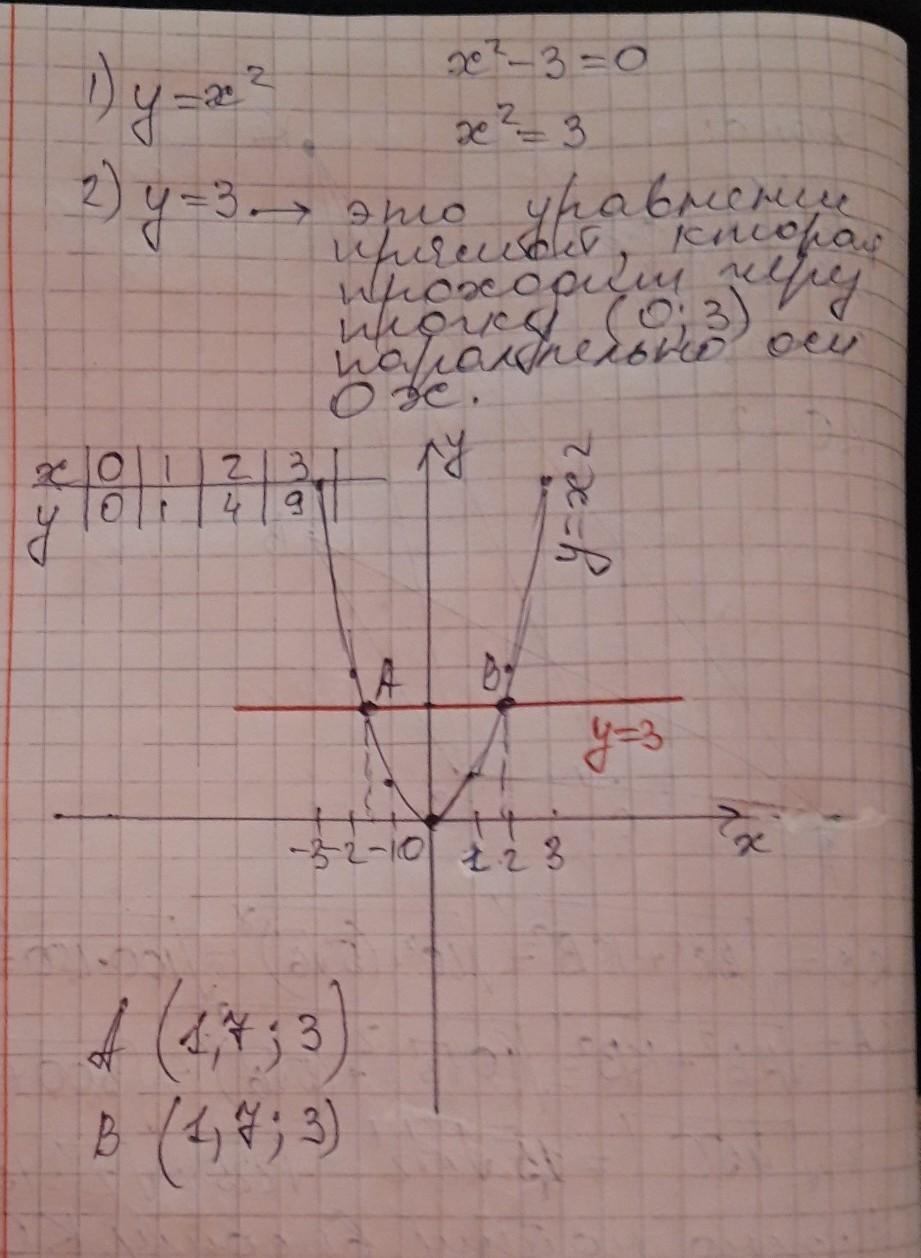 x² - 3 = 0
1) y = x²
x² = 3
2) y = 3 → это уравнение
прямой, которая
проходит через
точку (0; 3)
параллельно оси
Ox.
x 0 1 2 3
y 0 1 4 9
y
y = x²
A B
y = 3
-3 -2 -1 0 1 2 3
x
A (1,7; 3)
B (1,7; 3)